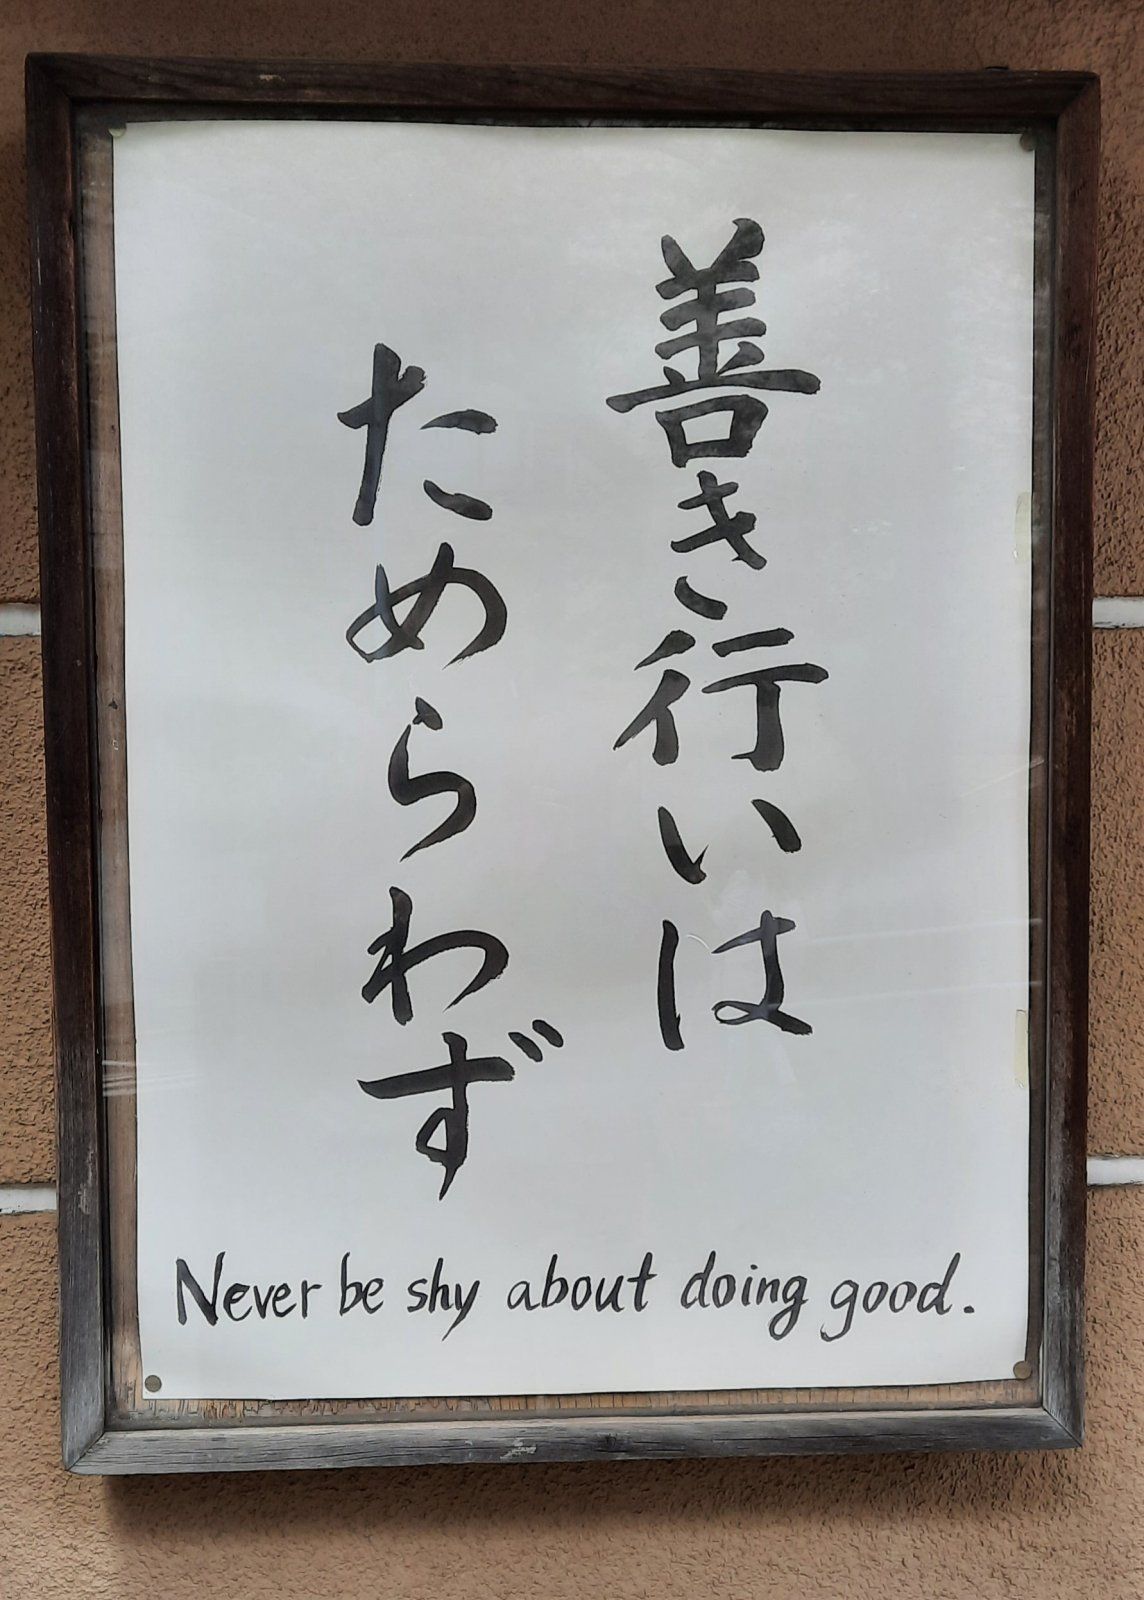 善き行いは
ためらわず
Never be shy about doing good.